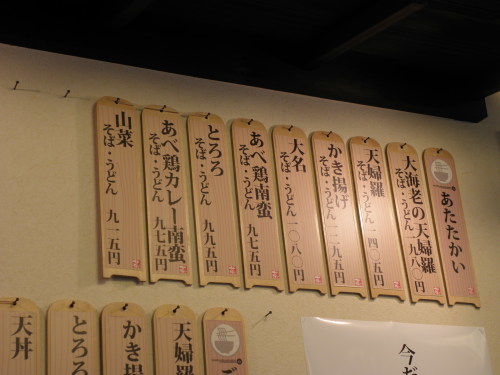 あたたかい
大海老の天婦羅
そば・うどん 一九八〇円
天婦羅
そば・うどん 一四〇五円
かき揚げ
そば・うどん 一二九五円
大名
そば・うどん 一〇八〇円
あべ鶏南蛮
そば・うどん 九七五円
とろろ
そば・うどん 九九五円
あべ鶏カレー南蛮
そば・うどん 九七五円
山菜
そば・うどん 九一五円
天婦羅
かき揚げ
とろろ
天丼